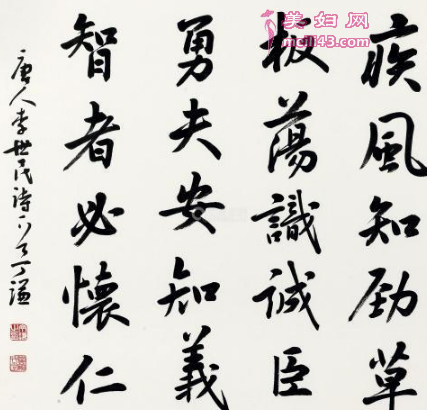 疾風知勁草
板蕩識誠臣
勇夫安知義
智者必懷仁
唐人李世民詩一首丁謐
美妇网
mcili43.com